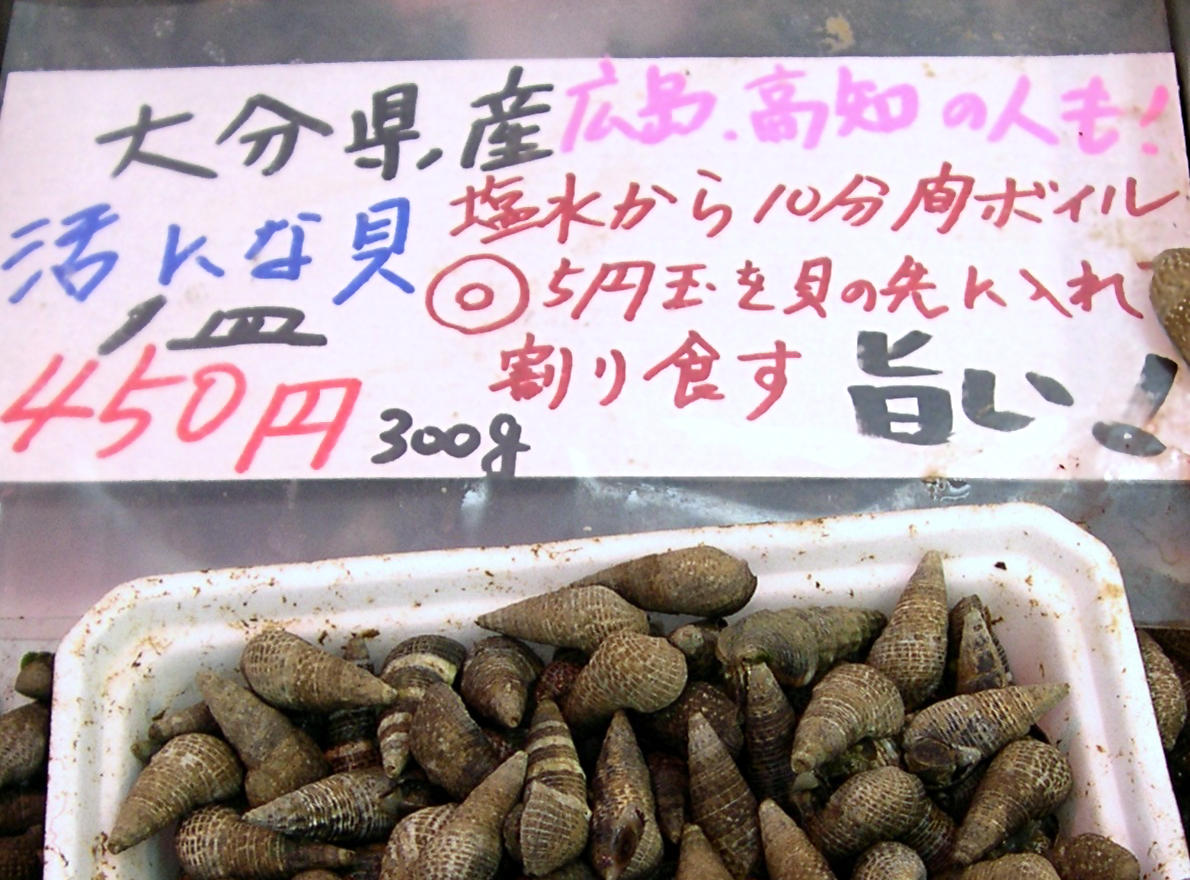 大分県産
広島、高知の人も!
活にな貝
1皿
450円
300g
塩水から10分間ボイル
◎5円玉を貝の先に入れ
割り食す
旨い!